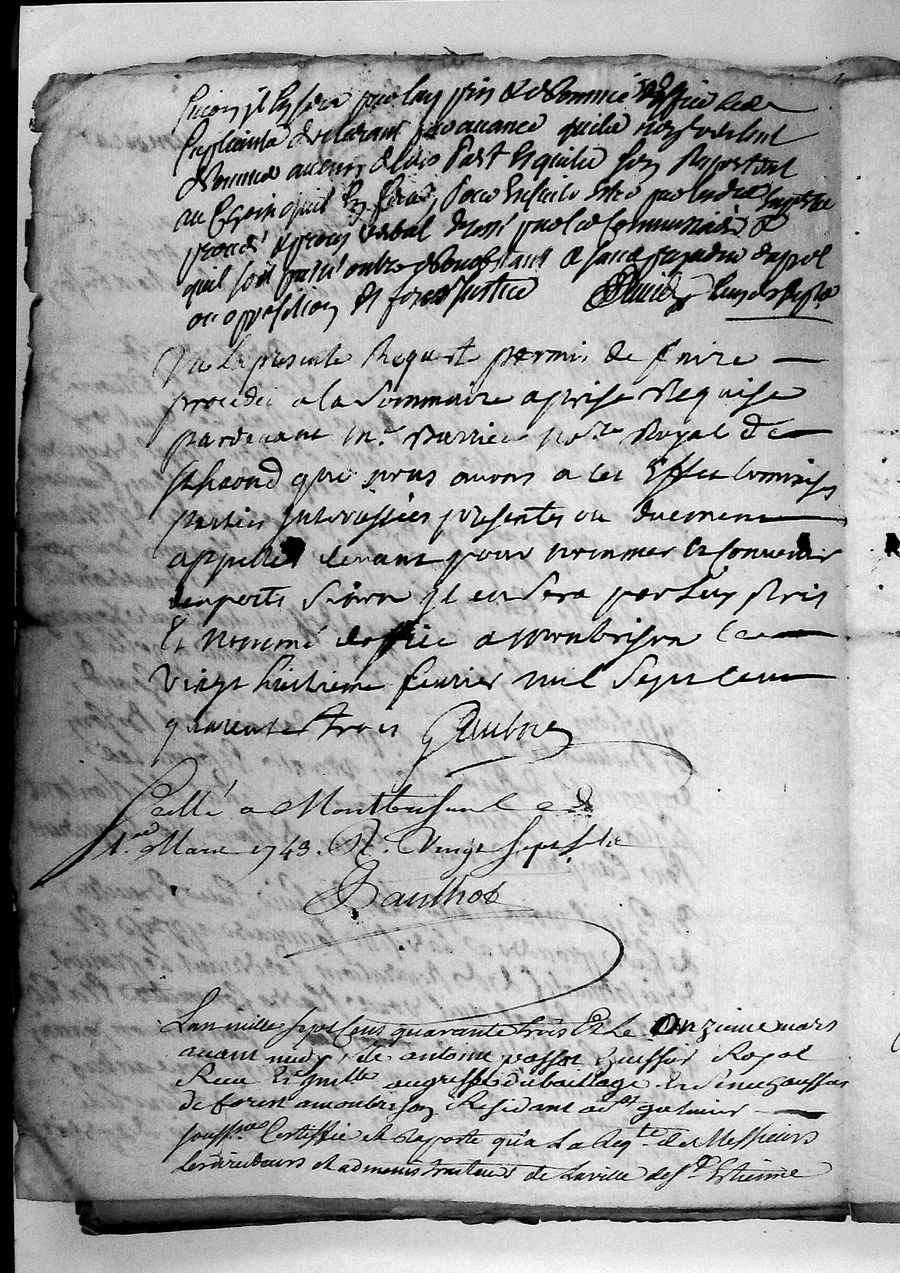 sinon il en sera par luy pris et nommé d'office les
supliants declarant par avance quils n'en veulent
nommer aucun de leur part et quils s'en raportent
au temoin quil en fera, pour ensuite estre par ledit
procedé a procés verbal dressé par le commissaire &
quil soit passé outre nonobstant & sans prejudice d'appel
ou opposition et feres justice
Vu la presente Requeste permis de faire
proceder a la sommaire aprise Requise
pardevant m.e Barrier no.re Royal de
st chaond que nous avons a cet Effet commis
parties interessées presentes ou duement
appellés devant pour nommer et convenir
dexperts sinon il en sera par luy Pris
et nommé doffice a montbrison le
vingt huitieme fevrier mil sept cent
quarente trois
Scellé a Montbrison le
1.er Mars 1743. R. Vingt sept s.
L'an mille sept cens quarante trois Et Le Onzieme mars
avant midy, je antoine passot huissier Royal
Receu Immatriculle au greffe du baillage et senechaussée
de forest a montbrison Residant a st galmier
souss.né Certiffie et Raporte qu'a La Req.te de Messieurs
Les recteurs et administrateurs de la ville de st Estienne